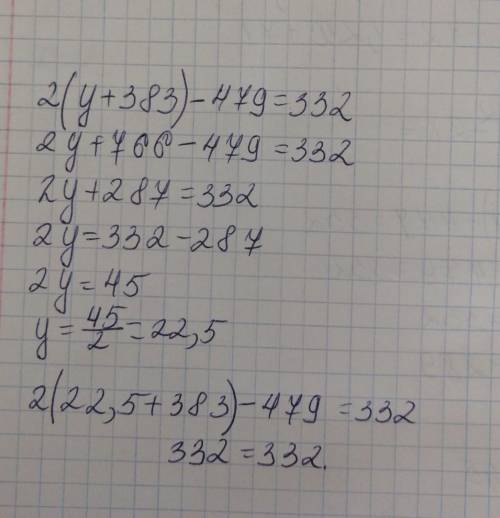 2(y+383)-479=332
2y+766-479=332
2y+287=332
2y=332-287
2y=45
y=45/2=22,5
2(22,5+383)-479=332
332=332.